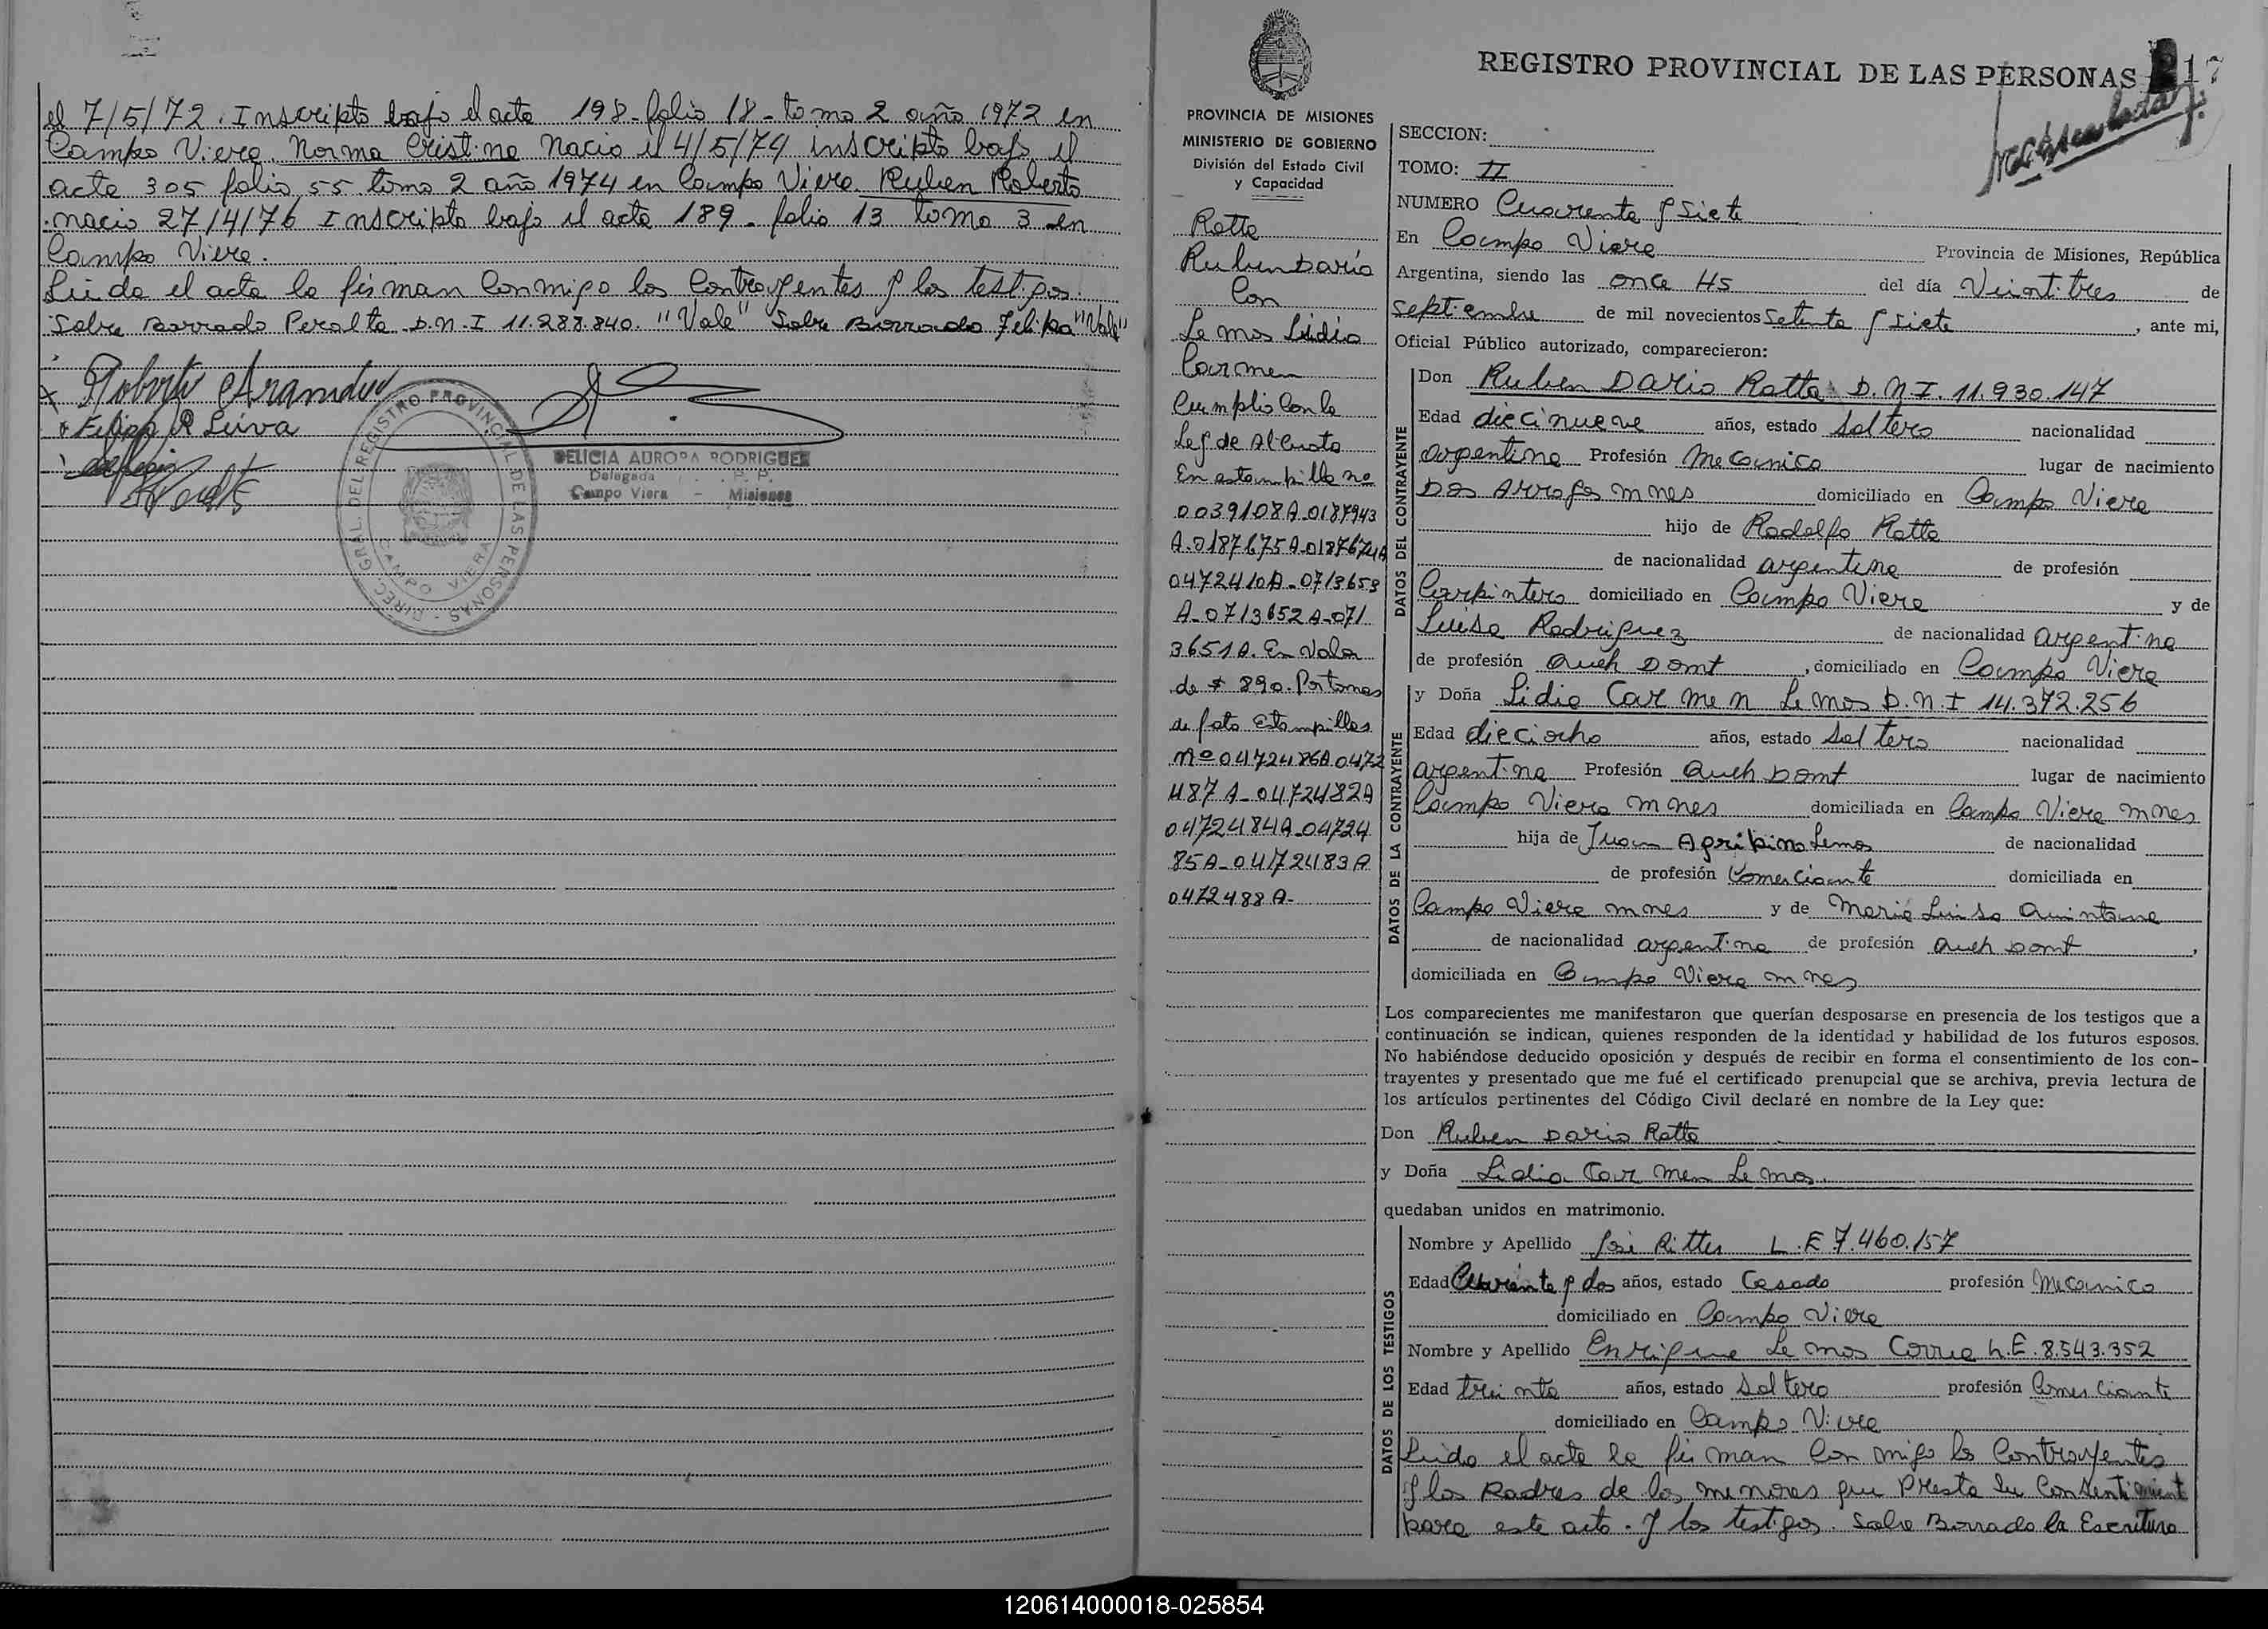 el 7/5/72. Inscripto bajo el acta 198- folio 18- tomo 2 año 1972 en
Campo Viera. Norma Cristina Nacio el 4/5/74 inscripto bajo el
acta 305 folio 55 tomo 2 año 1974 en Campo Viera. Ruben Roberto
nacio 27/4/76 Inscripto bajo el acta 189- folio 13 tomo 3 en
Campo Viera.
Leida el acta la firman Conmigo los Contrayentes y los testigos.
Sobre Borrado Peralta D.N.I 11.287.840. "Vale" Sobre Borrado Felipa "Vale"
Roberto
Leiva
DIREC. GRAL. DEL REGISTRO PROVINCIAL DE LAS PERSONAS
CAMPO VIERA
DELICIA AURORA RODRIGUEZ
Delegada R. P.
Campo Viera - Misiones
PROVINCIA DE MISIONES
MINISTERIO DE GOBIERNO
División del Estado Civil
y Capacidad
Ratto
Ruben Dario
Con
Lemos Lidia
Carmen
Cumplio Con la
Ley de Al Cuota
En estampilla no
0039108A-0187943
A-0187675A-0187674A
0472410A-0713653
A-0713652A-071
3651A. En Valor
de $ 890. Por tomas
de foto Estampillas
Nº 0472486A 0472
487A-0472482A
0472484A-04724
85A-0472483A
0472488A-
REGISTRO PROVINCIAL DE LAS PERSONAS
17
SECCION:
TOMO: II
NUMERO Cuarenta y Siete
En Campo Viera Provincia de Misiones, República
Argentina, siendo las once Hs del día Veintitres de
Septiembre de mil novecientos Setenta y Siete, ante mi,
Oficial Público autorizado, comparecieron:
DATOS DEL CONTRAYENTE
Don Ruben Dario Ratto D.N.I. 11.930.147
Edad diecinueve años, estado Soltero nacionalidad
argentina Profesión Mecanico lugar de nacimiento
Dos Arroyos mnes domiciliado en Campo Viera
hijo de Rodolfo Ratto
de nacionalidad argentina de profesión
Carpintero domiciliado en Campo Viera y de
Luisa Rodriguez de nacionalidad argentina
de profesión Queh Domt, domiciliado en Campo Viera
DATOS DE LA CONTRAYENTE
y Doña Lidia Carmen Lemos D.N.I 14.372.256
Edad dieciocho años, estado Soltera nacionalidad
argentina Profesión Queh Domt lugar de nacimiento
Campo Viera mnes domiciliada en Campo Viera mnes
hija de Juan Agripino Lemos de nacionalidad
de profesión Comerciante domiciliada en
Campo Viera mnes y de Maria Luisa Quintana
de nacionalidad argentina de profesión Queh Domt,
domiciliada en Campo Viera mnes
Los comparecientes me manifestaron que querían desposarse en presencia de los testigos que a
continuación se indican, quienes responden de la identidad y habilidad de los futuros esposos.
No habiéndose deducido oposición y después de recibir en forma el consentimiento de los con-
trayentes y presentado que me fué el certificado prenupcial que se archiva, previa lectura de
los artículos pertinentes del Código Civil declaré en nombre de la Ley que:
Don Ruben Dario Ratto
y Doña Lidia Carmen Lemos.
quedaban unidos en matrimonio.
DATOS DE LOS TESTIGOS
Nombre y Apellido José Ritter L.E 7.460.157
Edad Cuarenta y dos años, estado Casado profesión Mecanico
domiciliado en Campo Viera
Nombre y Apellido Enrique Lemos Correa L.E. 8.543.352
Edad treinta años, estado Soltero profesión Comerciante
domiciliado en Campo Viera
Leida el acta la firman Conmigo los Contrayentes
y los Padres de los menores que Presta Su Consentimient
para este acto. y los testigos. Sobre Borrado la Escritura
120614000018-025854